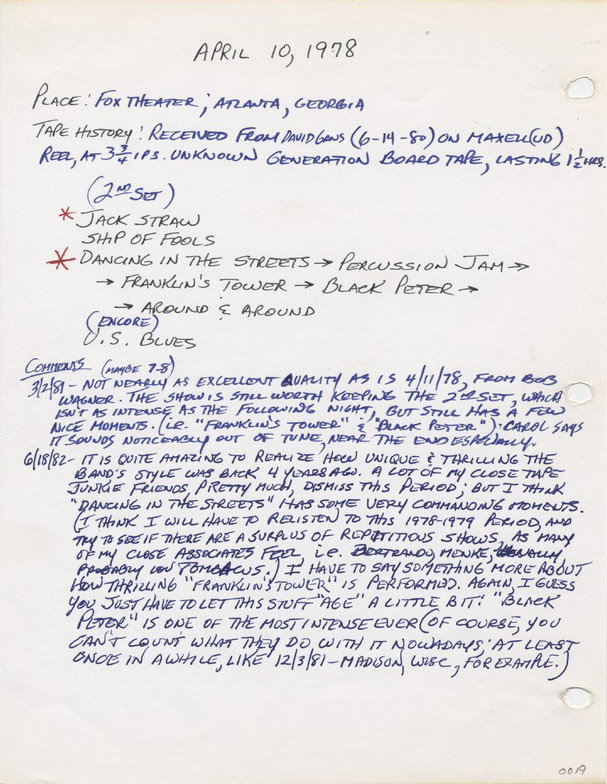 APRIL 10, 1978
PLACE: FOX THEATER; ATLANTA, GEORGIA
TAPE HISTORY: RECEIVED FROM DAVID GANS (6-14-80) ON MAXELL (UD)
REEL, AT 3 3/4 IPS. UNKNOWN GENERATION BOARD TAPE, LASTING 1 1/2 HRS.
(2ND SET)
* JACK STRAW
SHIP OF FOOLS
* DANCING IN THE STREETS → PERCUSSION JAM →
→ FRANKLIN'S TOWER → BLACK PETER →
→ AROUND & AROUND
(ENCORE)
U.S. BLUES
COMMENTS (MAYBE 7-8)
3/2/81 - NOT NEARLY AS EXCELLENT QUALITY AS IS 4/11/78, FROM BOB
WAGNER. THE SHOW IS STILL WORTH KEEPING THE 2ND SET, WHICH
ISN'T AS INTENSE AS THE FOLLOWING NIGHT, BUT STILL HAS A FEW
NICE MOMENTS. (i.e. "FRANKLIN'S TOWER" & "BLACK PETER"). CAROL SAYS
IT SOUNDS NOTICEABLY OUT OF TUNE, NEAR THE END ESPECIALLY.
6/18/82 - IT IS QUITE AMAZING TO REALIZE HOW UNIQUE & THRILLING THE
BAND'S STYLE WAS BACK 4 YEARS AGO. A LOT OF MY CLOSE TAPE
JUNKIE FRIENDS, PRETTY MUCH, DISMISS THIS PERIOD; BUT I THINK
"DANCING IN THE STREETS" HAS SOME VERY COMMANDING MOMENTS.
(I THINK I WILL HAVE TO RELISTEN TO THIS 1978-1979 PERIOD, AND
TRY TO SEE IF THERE ARE A SURPLUS OF REPETITIOUS SHOWS, AS MANY
OF MY CLOSE ASSOCIATES FEEL, i.e. BERTRANDO, MENKE,
PROBABLY LOU TOMBACUS.) I HAVE TO SAY SOMETHING MORE ABOUT
HOW THRILLING "FRANKLIN'S TOWER" IS PERFORMED. AGAIN, I GUESS
YOU JUST HAVE TO LET THIS STUFF "AGE" A LITTLE BIT! "BLACK
PETER" IS ONE OF THE MOST INTENSE EVER (OF COURSE, YOU
CAN'T COUNT WHAT THEY DO WITH IT NOWADAYS; AT LEAST
ONCE IN A WHILE, LIKE 12/3/81 - MADISON, WISC, FOR EXAMPLE.)
0019